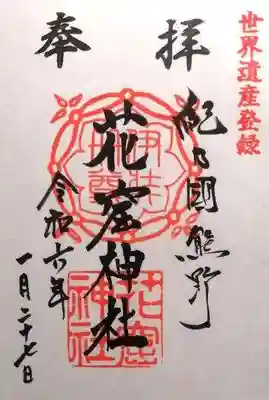 世界遺産登録
奉拝
紀乃国熊野
花窟神社
令和六年
一月二十七日
花窟神社